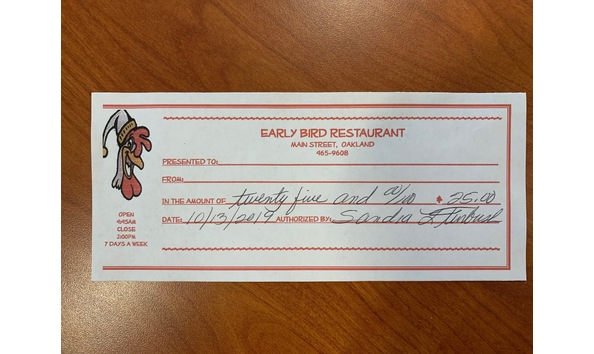 EARLY BIRD RESTAURANT
MAIN STREET, OAKLAND
465-9608
PRESENTED TO:
FROM:
IN THE AMOUNT OF twenty five and 00/100 $ 25.00
DATE: 10/13/2019 AUTHORIZED BY: Sandra L.
OPEN
4:45AM
CLOSE
2:00PM
7 DAYS A WEEK